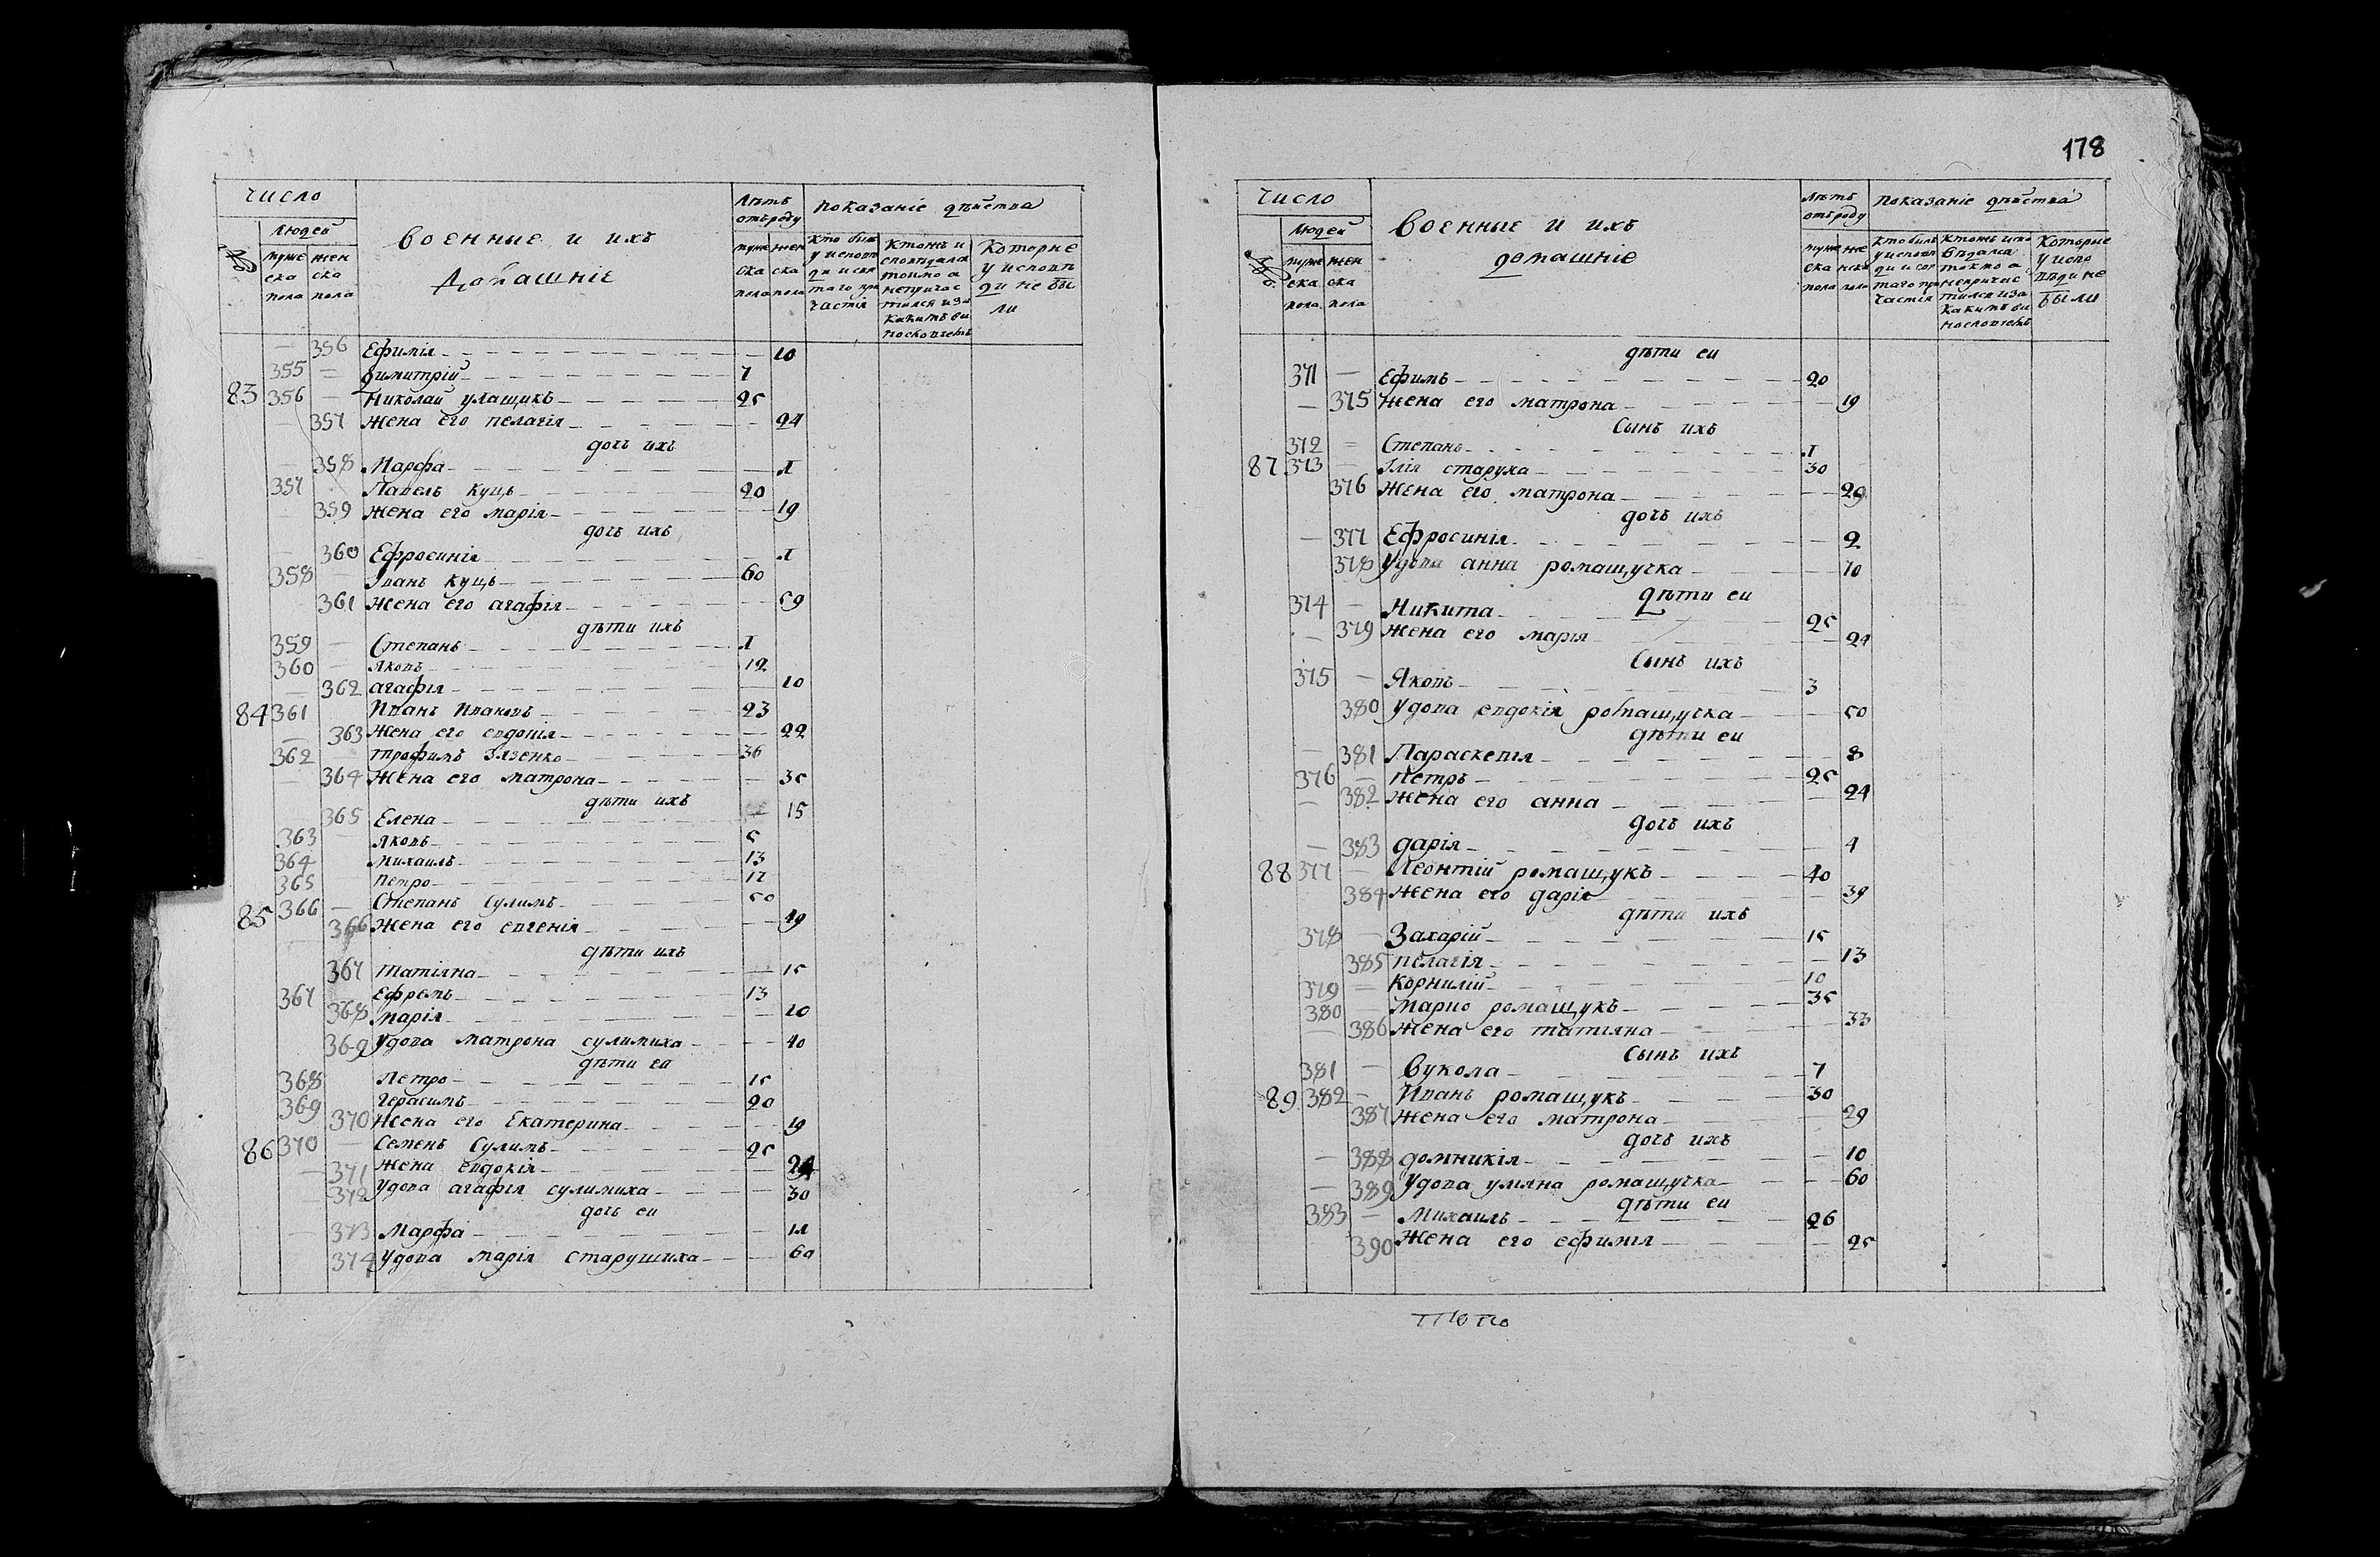 число
людей
военные и ихъ
домашніе
лѣтъ
отъ роду
показаніе дѣйства
№
муже
ска
пола
жен
ска
пола
муже
ска
пола
жен
ска
пола
кто былъ
у исповѣ
ди и свя
таго при
частія
ктожъ и
сповѣдался
токмо а
непричас
тился и за
какимъ ви
нословіемъ
которые
у исповѣ
ди не бы
ли
— 356 Ефимія — 10
355 — димитрій 7
83 356 — Николай улащикъ 25
— 357 жена его пелагія — 24
дочь ихъ
— 358 Марфа — 1
357 Павелъ куцъ 20
359 жена его марія — 19
дочь ихъ
— 360 Ефросинія — 1
358 — Іванъ куцъ 60
361 жена его агафія — 59
дѣти ихъ
359 — Степанъ 1
360 — яковъ 12
— 362 агафія — 10
84 361 Иванъ Ивановъ 23
— 363 жена его евдокія — 22
362 трофимъ Зязенко 36
— 364 жена его матрона — 35
дѣти ихъ
365 Елена — 15
363 — яковъ 5
364 михаилъ 13
365 петро 12
85 366 — Степанъ Сулимъ 50
— 366 жена его евгенія — 49
дѣти ихъ
367 татіяна — 15
367 Ефремъ 13
368 марія — 10
369 Удова матрона сулимиха — 40
дѣти еи
368 Петро 15
369 герасимъ 20
370 жена его Екатерина — 19
86 370 — Семенъ Сулимъ 25
— 371 жена евдокія — 24
— 372 удова агафія сулимиха — 30
дочь еи
— 373 марфа — 11
374 удова марія старушиха — 60
178
число
людей
военные и ихъ
домашніе
лѣтъ
отъ роду
показаніе дѣйства
№
муже
ска
пола
жен
ска
пола
муже
ска
пола
же
нска
пола
кто былъ
у исповѣ
ди и свя
таго при
частія
ктожъ испо
вѣдался
токмо а
непричас
тился и за
какимъ ви
нословіемъ
которые
у испо
вѣди не
были
дѣти еи
371 — Ефимъ 20
— 375 жена его матрона — 19
Сынъ ихъ
372 — Степанъ 1
87 373 — Ілія старуха 30
376 жена его матрона — 29
дочь ихъ
— 377 Ефросинія — 2
378 Удова анна ромащучка — 70
дѣти еи
374 — Никита 25
— 379 жена его марія — 24
Сынъ ихъ
375 — Яковъ 3
380 Удова евдокія ромащучка — 50
дѣти еи
— 381 Параскевія — 8
376 — петръ 25
— 382 жена его анна — 24
дочь ихъ
— 383 дарія — 4
88 377 — Леонтій ромащукъ 40
384 жена его дарія — 39
дѣти ихъ
378 — Захарій 15
385 пелагія — 13
379 — корнилій 10
380 марко ромащукъ 35
— 386 жена его татіяна — 33
Сынъ ихъ
381 — Вукола 7
89 382 — Иванъ ромащукъ 30
387 жена его матрона — 29
дочь ихъ
— 388 домникія — 10
— 389 Удова уляна ромащучка — 60
дѣти еи
383 — Михаилъ 26
390 жена его ефимія — 25